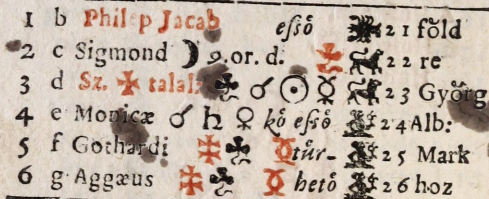 1 b Philep Jacab esső 21 föld
2 c Sigmond ☽ 9. or. d. 22 re
3 d Sz. ✠ talal: ☌ ☉ ☿ 23 Győrg
4 e Monicæ ☌ ♄ ♀ kö esső 24 Alb:
5 f Gothardi ✠ tür- 25 Mark
6 g Aggæus ✠ hető 26 hoz